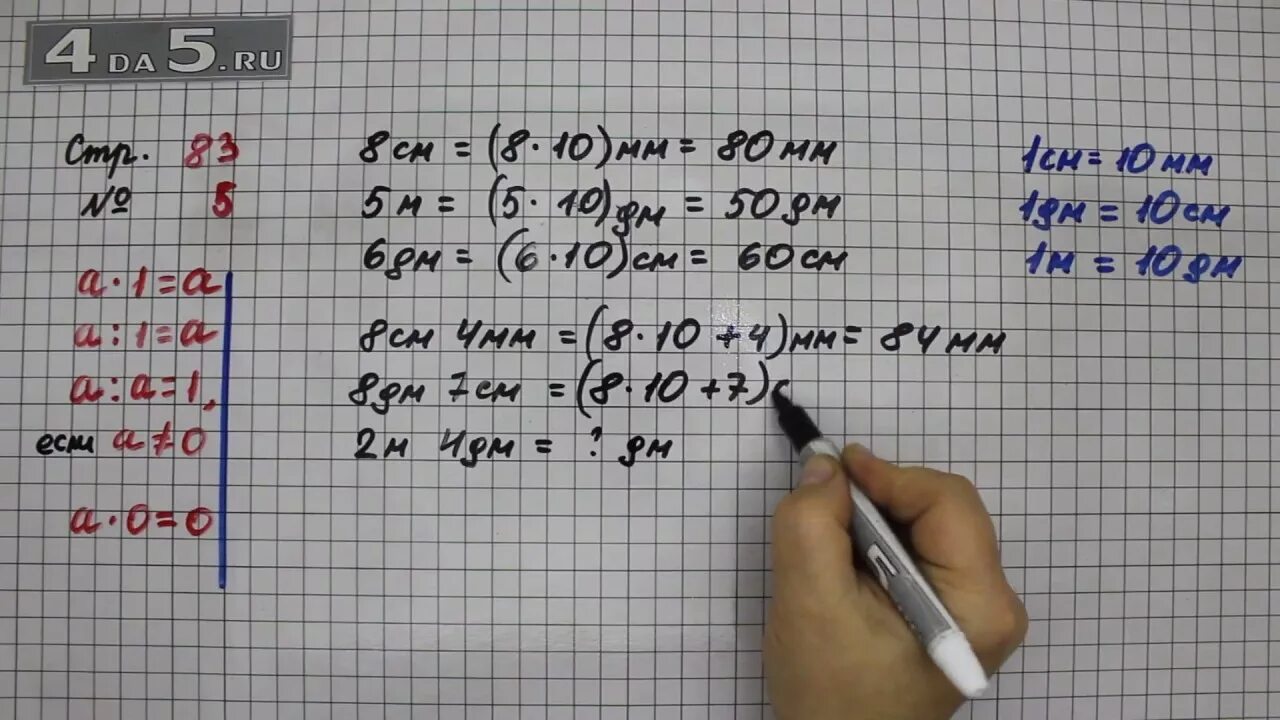 4DA5.RU
Стр. 83
№ 5
a · 1 = a
a : 1 = a
a : a = 1,
если a ≠ 0
a · 0 = 0
8 см = (8 · 10) мм = 80 мм
5 м = (5 · 10) дм = 50 дм
6 дм = (6 · 10) см = 60 см
8 см 4 мм = (8 · 10 + 4) мм = 84 мм
8 дм 7 см = (8 · 10 + 7) с
2 м 4 дм = ? дм
1 см = 10 мм
1 дм = 10 см
1 м = 10 дм